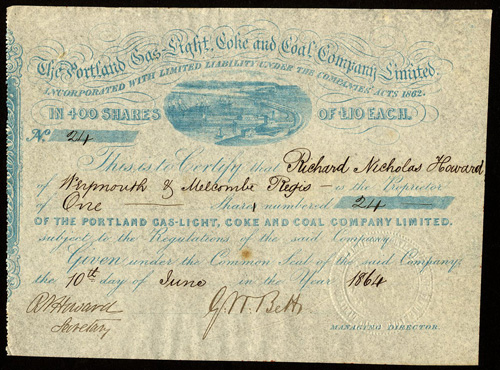 The Portland Gas-Light, Coke and Coal Company Limited.
INCORPORATED WITH LIMITED LIABILITY UNDER THE COMPANIES ACTS 1862.
IN 400 SHARES OF £10 EACH.
No. 24
This is to Certify that Richard Nicholas Howard
of Weymouth & Melcombe Regis is the Proprietor
of One Share numbered 24
OF THE PORTLAND GAS-LIGHT, COKE AND COAL COMPANY LIMITED.
subject to the Regulations of the said Company.
Given under the Common Seal of the said Company,
the 10th day of June in the Year 1864
RN Howard
Secretary
G. W. Betts
MANAGING DIRECTOR.